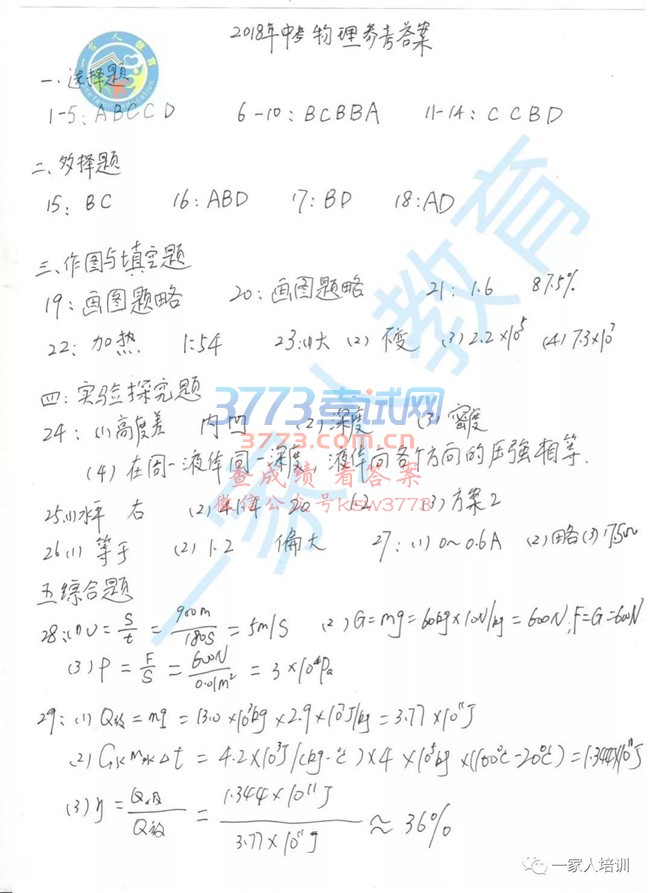 2018年中考物理参考答案
一家人教育
一、选择题
1-5: ABCCD 6-10: BCBBA 11-14: CCBD
二、多择题
15: BC 16: ABD 17: BD 18: AD
三、作图与填空题
19: 画图题略 20: 画图题略 21: 1.6 87.5%
22: 加热 1:54 23: (1)大 (2) 不变 (3) 2.2×10⁵ (4) 7.3×10³
四: 实验探究题
24: (1) 高度差 内凹 (2) 深度 (3) 密度
(4) 在同一液体同一深度, 液体向各个方向的压强相等.
25.(1)水平 右 (2) 20 (3) 方案2
26(1) 等于 (2) 1.2 偏大 27: (1) 0~0.6A (2)略(3)
五综合题
28:(1) v = s/t = 900m/180s = 5m/s (2) G=mg=60kg×10N/kg=600N, F=G=600N
(3) P = F/S = 600N/0.01m² = 3×10⁴Pa
29: (1) Q放 = mq = ×2.9×10⁷J/kg = 3.77×10¹¹J
(2) C水m水△t = 4.2×10³J/(kg·℃)×4 ×(100℃-20℃) = 1.344×10¹¹J
(3) η = Q吸/Q放 = 1.344×10¹¹J/3.77×10¹¹J ≈ 36%
一家人教育
3773考试网
3773.com.cn
查成绩 看答案
微信公众号ksw3773
一家人培训